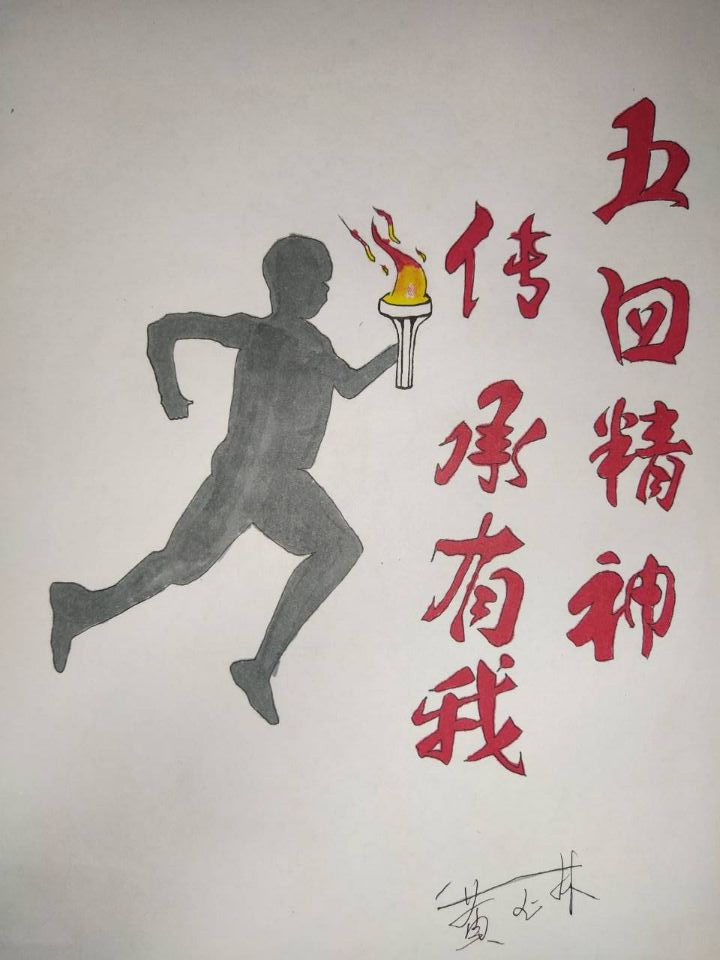 五四精神
传承有我
黄仁林